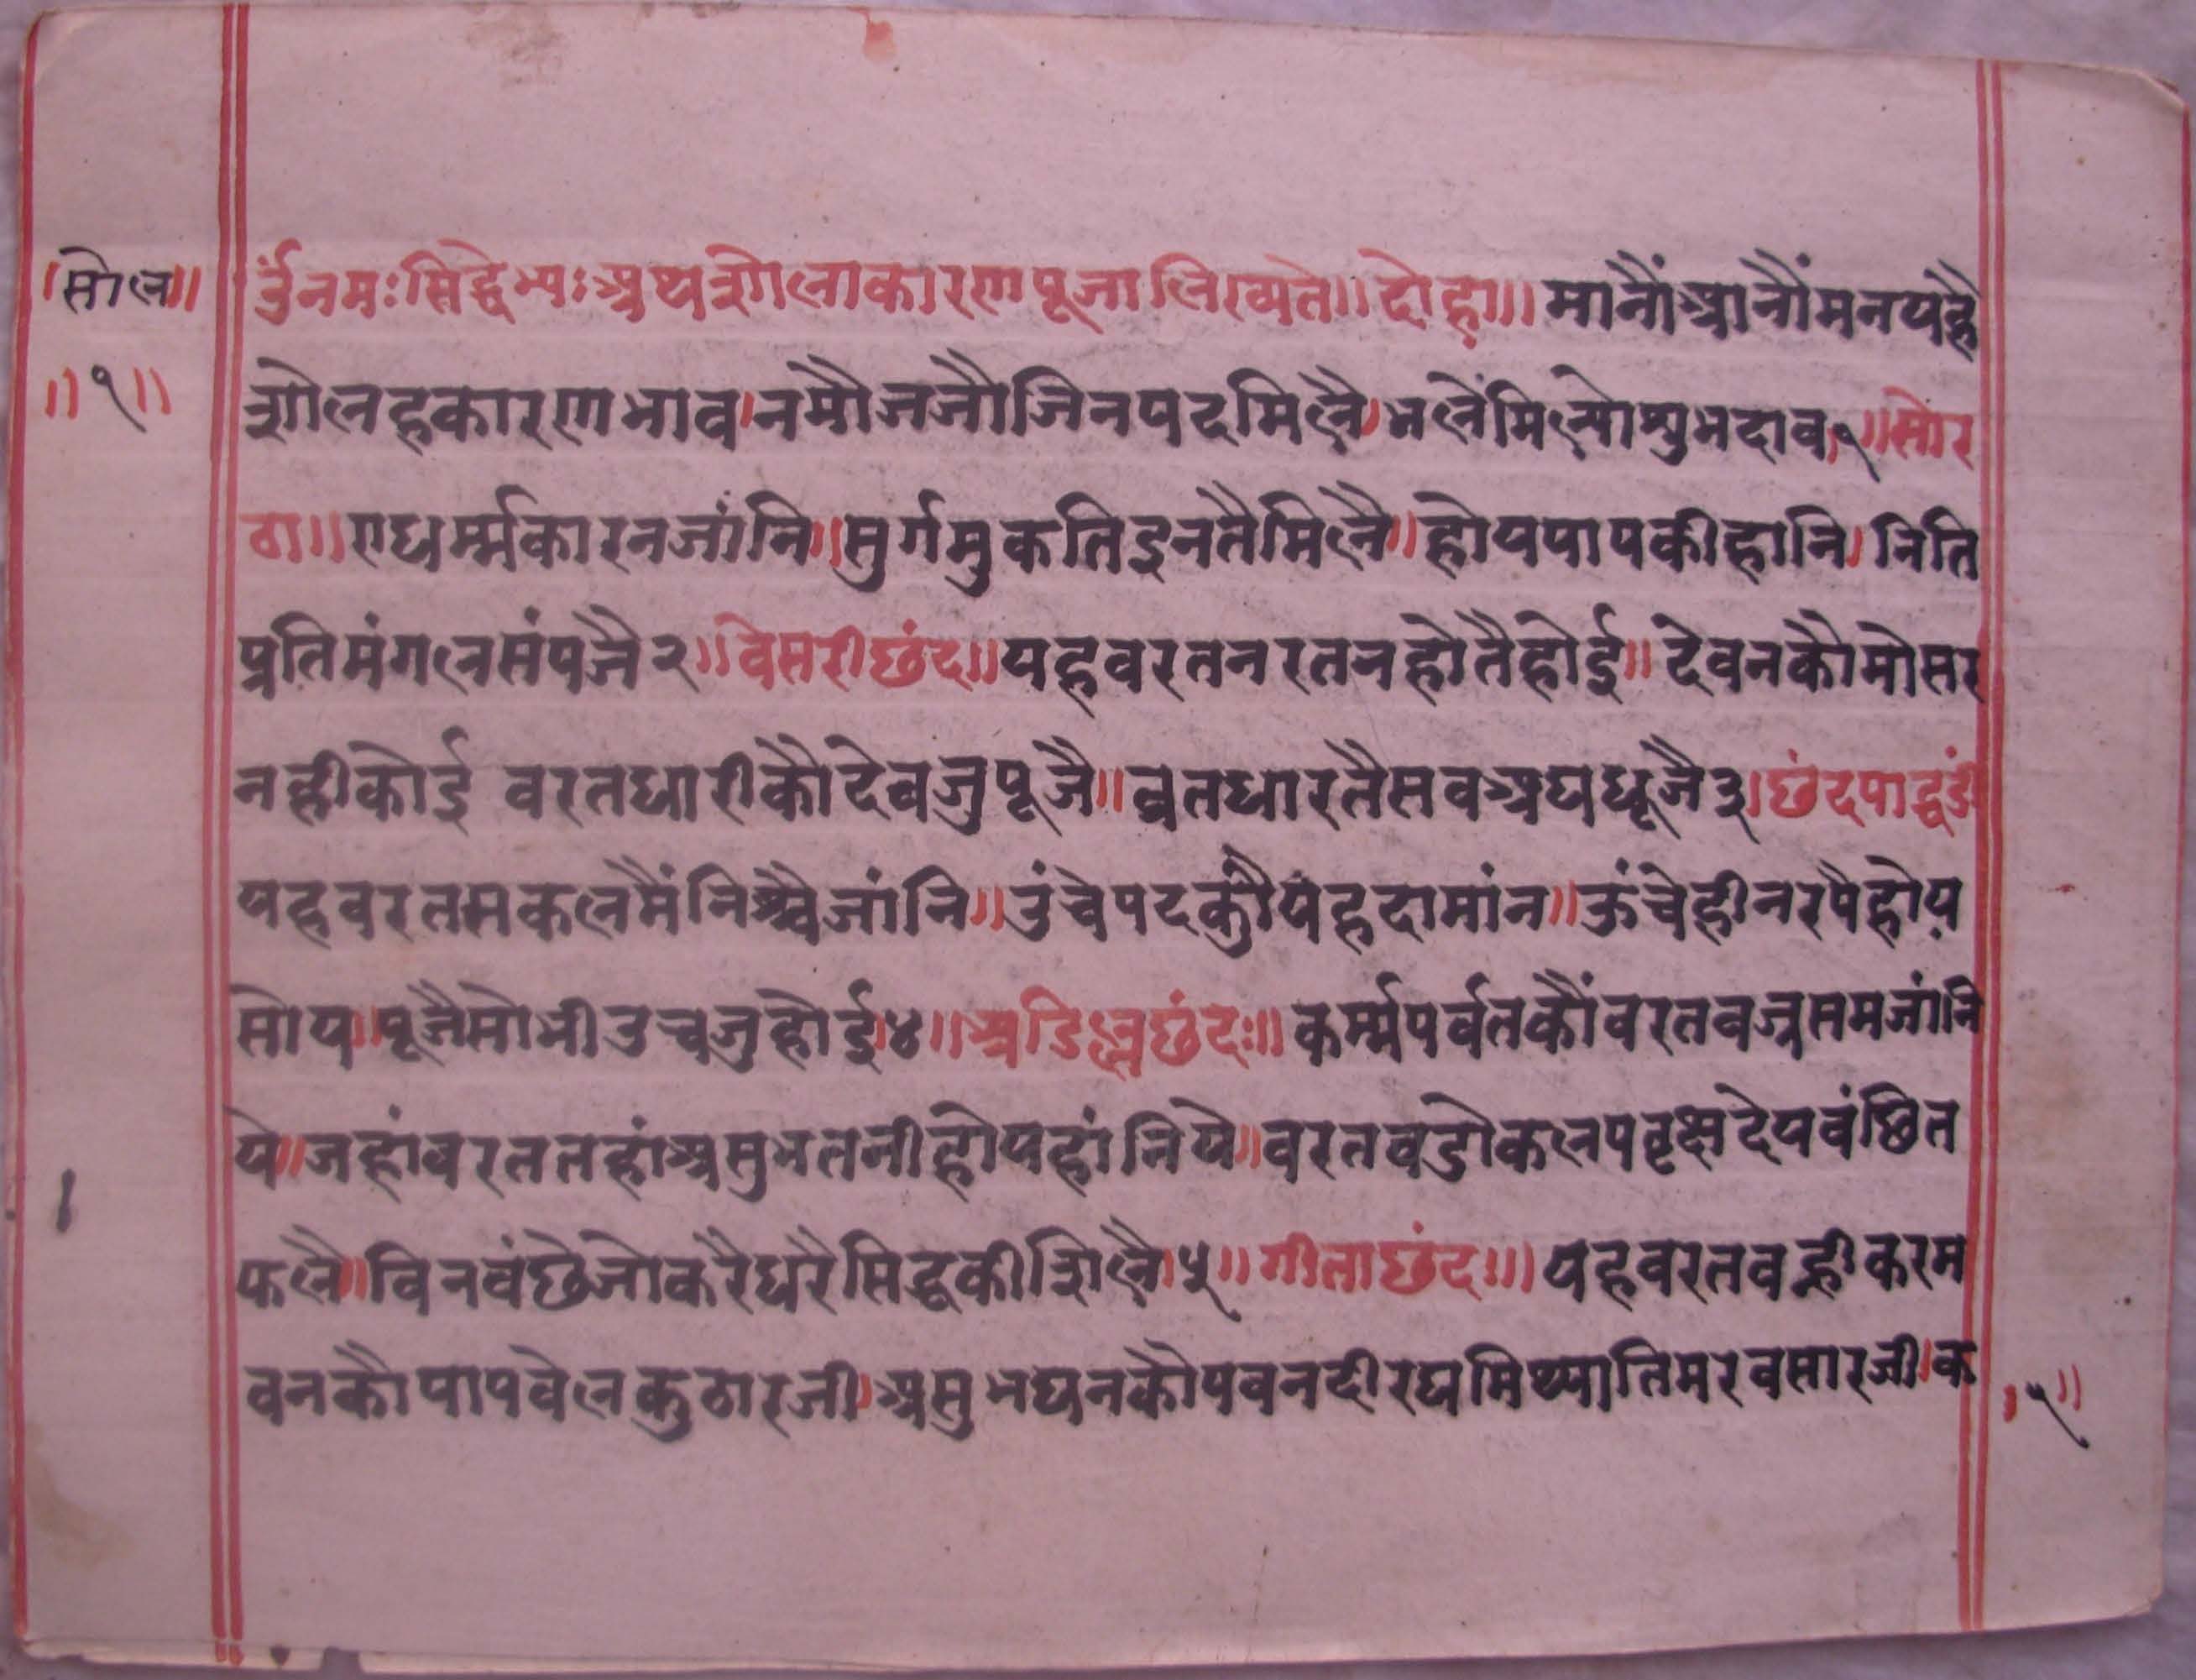 ।सोल॥
॥१॥
ॐनमःसिद्धेभ्यःअथशोलाकारणपूजालिख्यते॥दोहा॥मानौंआनौंमनयहै
शोलहकारणभाव।नमौजजौजिनपदमिलै।भलेंमिल्योशुभदाव१॥सोर
ठा॥एधर्म्मकारनजांनि॥सुर्गमुकतिइनतैमिलै॥होयपापकीहानि।निति
प्रतिमंगलसंपजै२॥वेसरीछंद॥यहवरतनरतनहोतैहोई॥देवनकौमोसर
नहीकोई वरतधारीकौदेवजुपूजै॥व्रतधारतैसवअघधूजै३।छंदपाद्धडी
यहवरतसकलमैंनिश्चैजांनि॥उंचेपदकुौयहदामांन॥ऊंचेहीनरपैहोय
सोय॥पूजैसोभीउचजुहोई।४॥अडिल्लछंदः॥कर्म्मपर्वतकौंवरतवज्रसमजांनि
ये॥जहांवरततहांअसुभतनीहोयहांनिये॥वरतवडोकलपवृक्षदेयवंछित
फलै॥विनवंछेजोकरैधरैसिद्धकीशिलै।५॥गीताछंदः॥यहवरतवह्नीकरम
वनकौपापवेलकुठारजी।असुभघनकौपवनदीरघमिथ्यातिमरवसारजी।क
।५॥